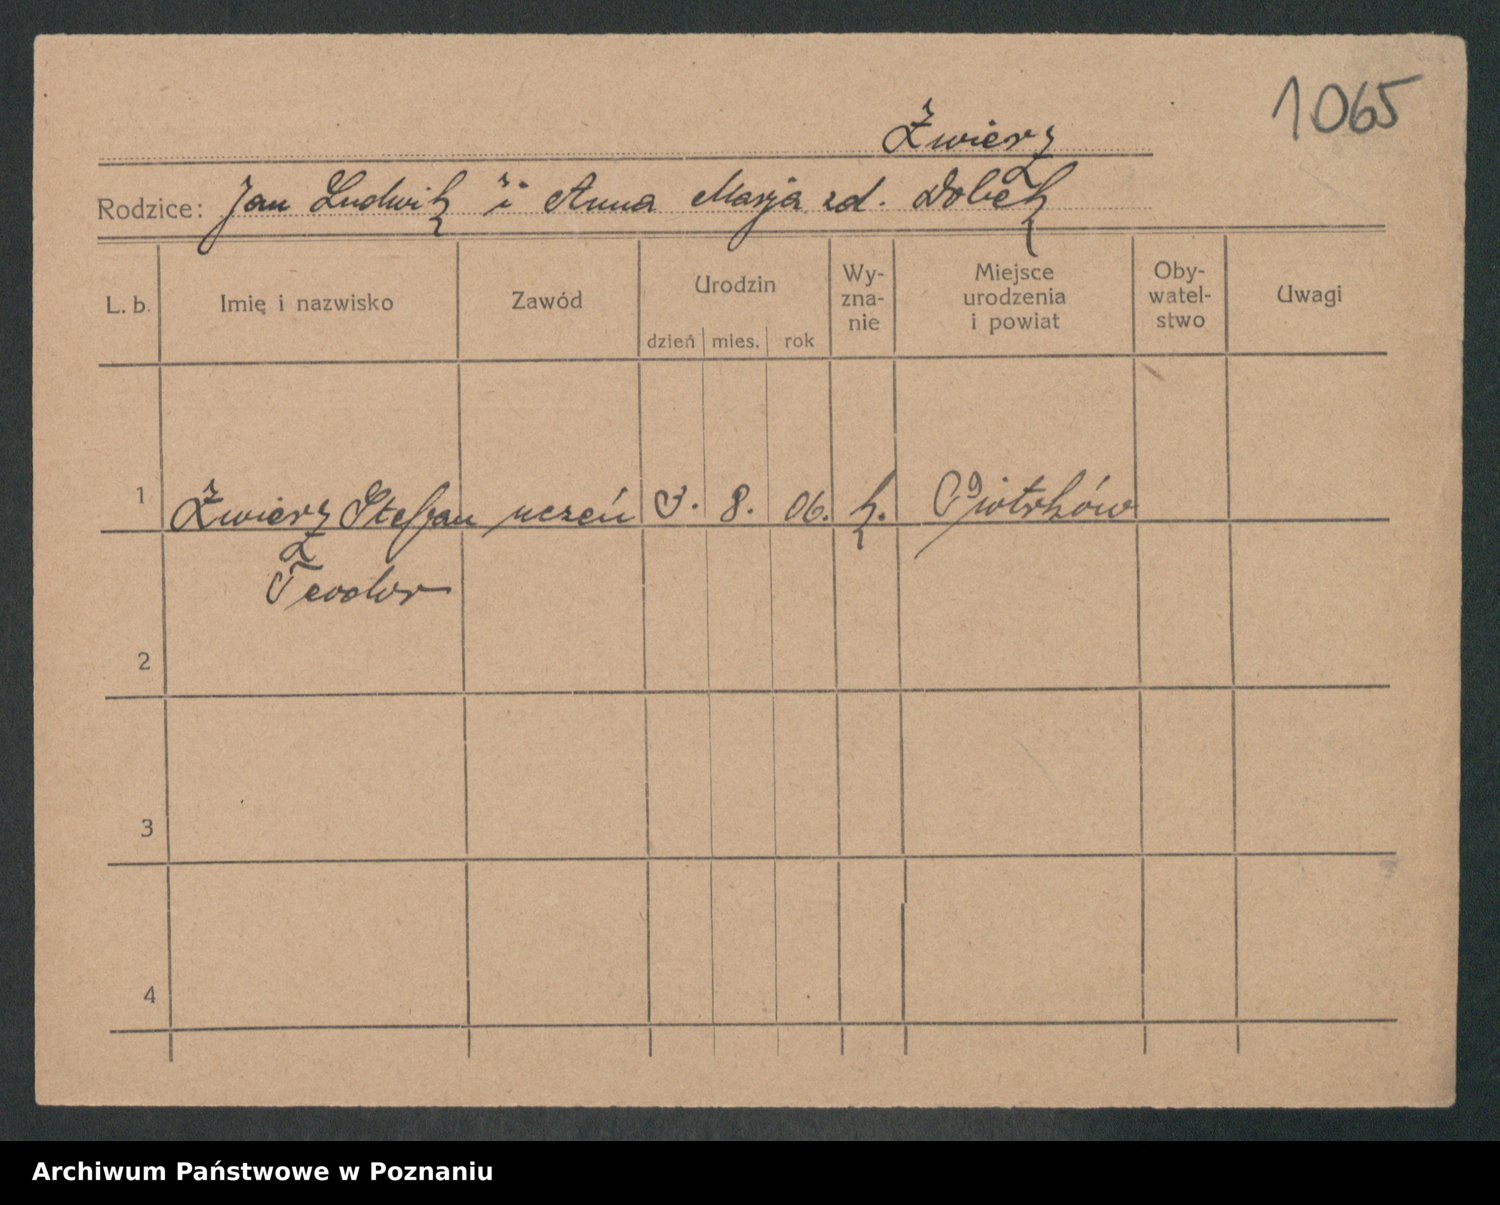 1065
Żwierz
Rodzice: Jan Ludwik i Anna Marja zd. Dobek
L. b. Imię i nazwisko Zawód Urodzin dzień mies. rok Wy-zna-nie Miejsce urodzenia i powiat Oby-watel-stwo Uwagi
1 Żwierz Stefan uczeń 3. 8. 06. k. Piotrków
Teodor
2
3
4
Archiwum Państwowe w Poznaniu